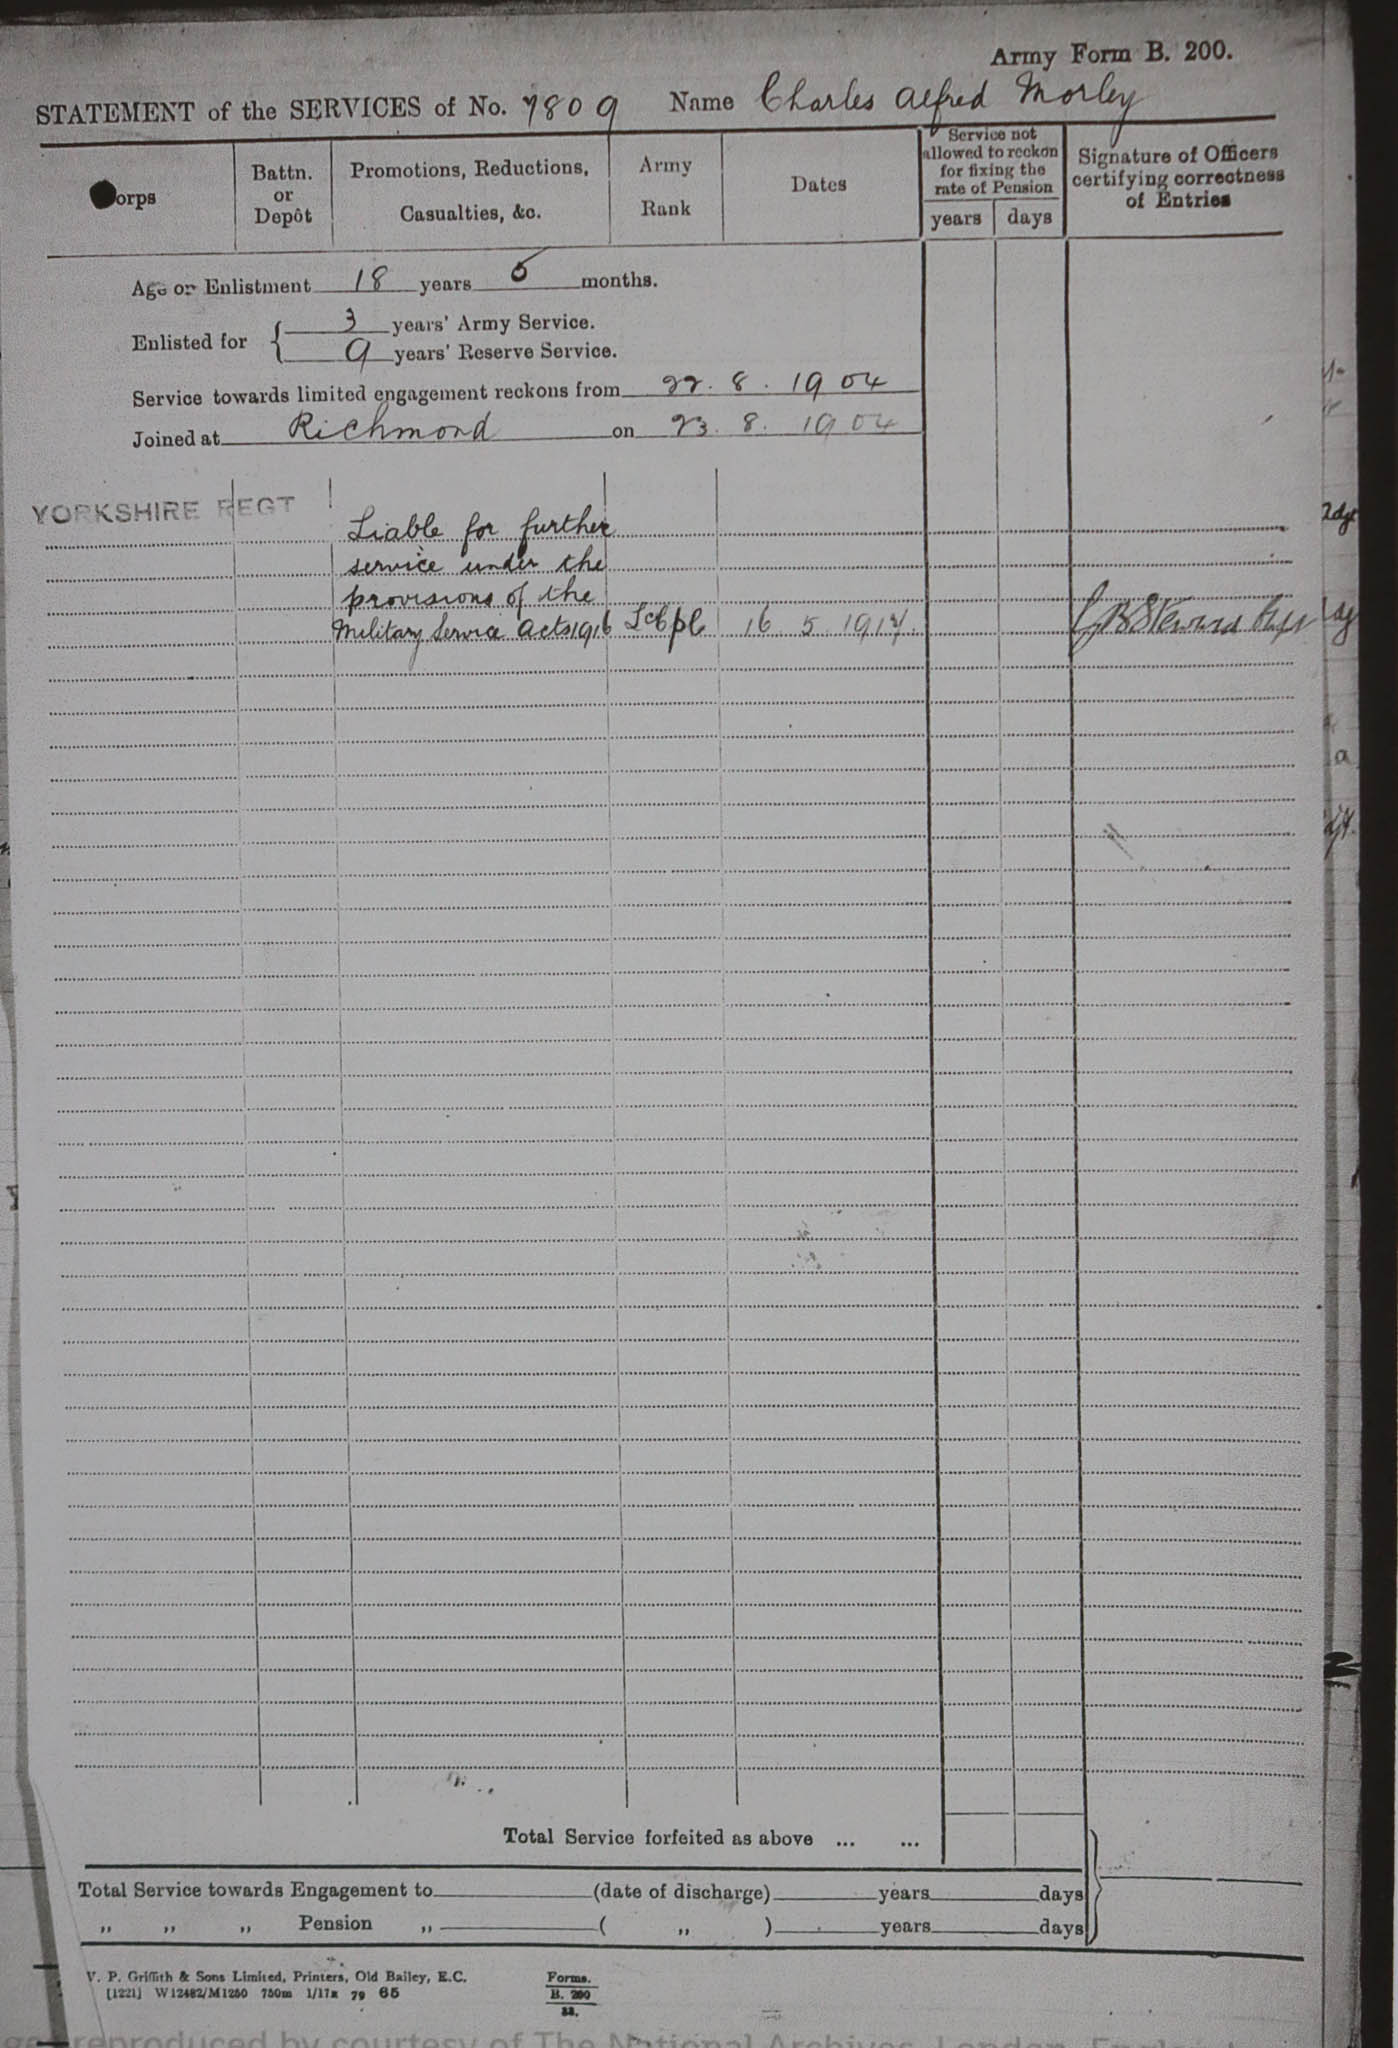 Army Form B. 200.
STATEMENT of the SERVICES of No. 7809 Name Charles Alfred Morley
Corps
Battn. or Depôt
Promotions, Reductions, Casualties, &c.
Army Rank
Dates
Service not allowed to reckon for fixing the rate of Pension
years days
Signature of Officers certifying correctness of Entries
Age on Enlistment 18 years 5 months.
Enlisted for { 3 years' Army Service.
9 years' Reserve Service.
Service towards limited engagement reckons from 22. 8. 1904
Joined at Richmond on 23. 8. 1904
YORKSHIRE REGT
Liable for further
service under the
provisions of the
Military Service Acts 1916 16 5 1917.
Total Service forfeited as above ... ...
Total Service towards Engagement to (date of discharge) years days
„ „ „ Pension „ ( „ ) years days
V. P. Griffith & Sons Limited, Printers, Old Bailey, E.C.
[1221] W12482/M1250 750m 1/17R 79 65
Forms.
B. 200
reproduced by courtesy of The National Archives, London, England